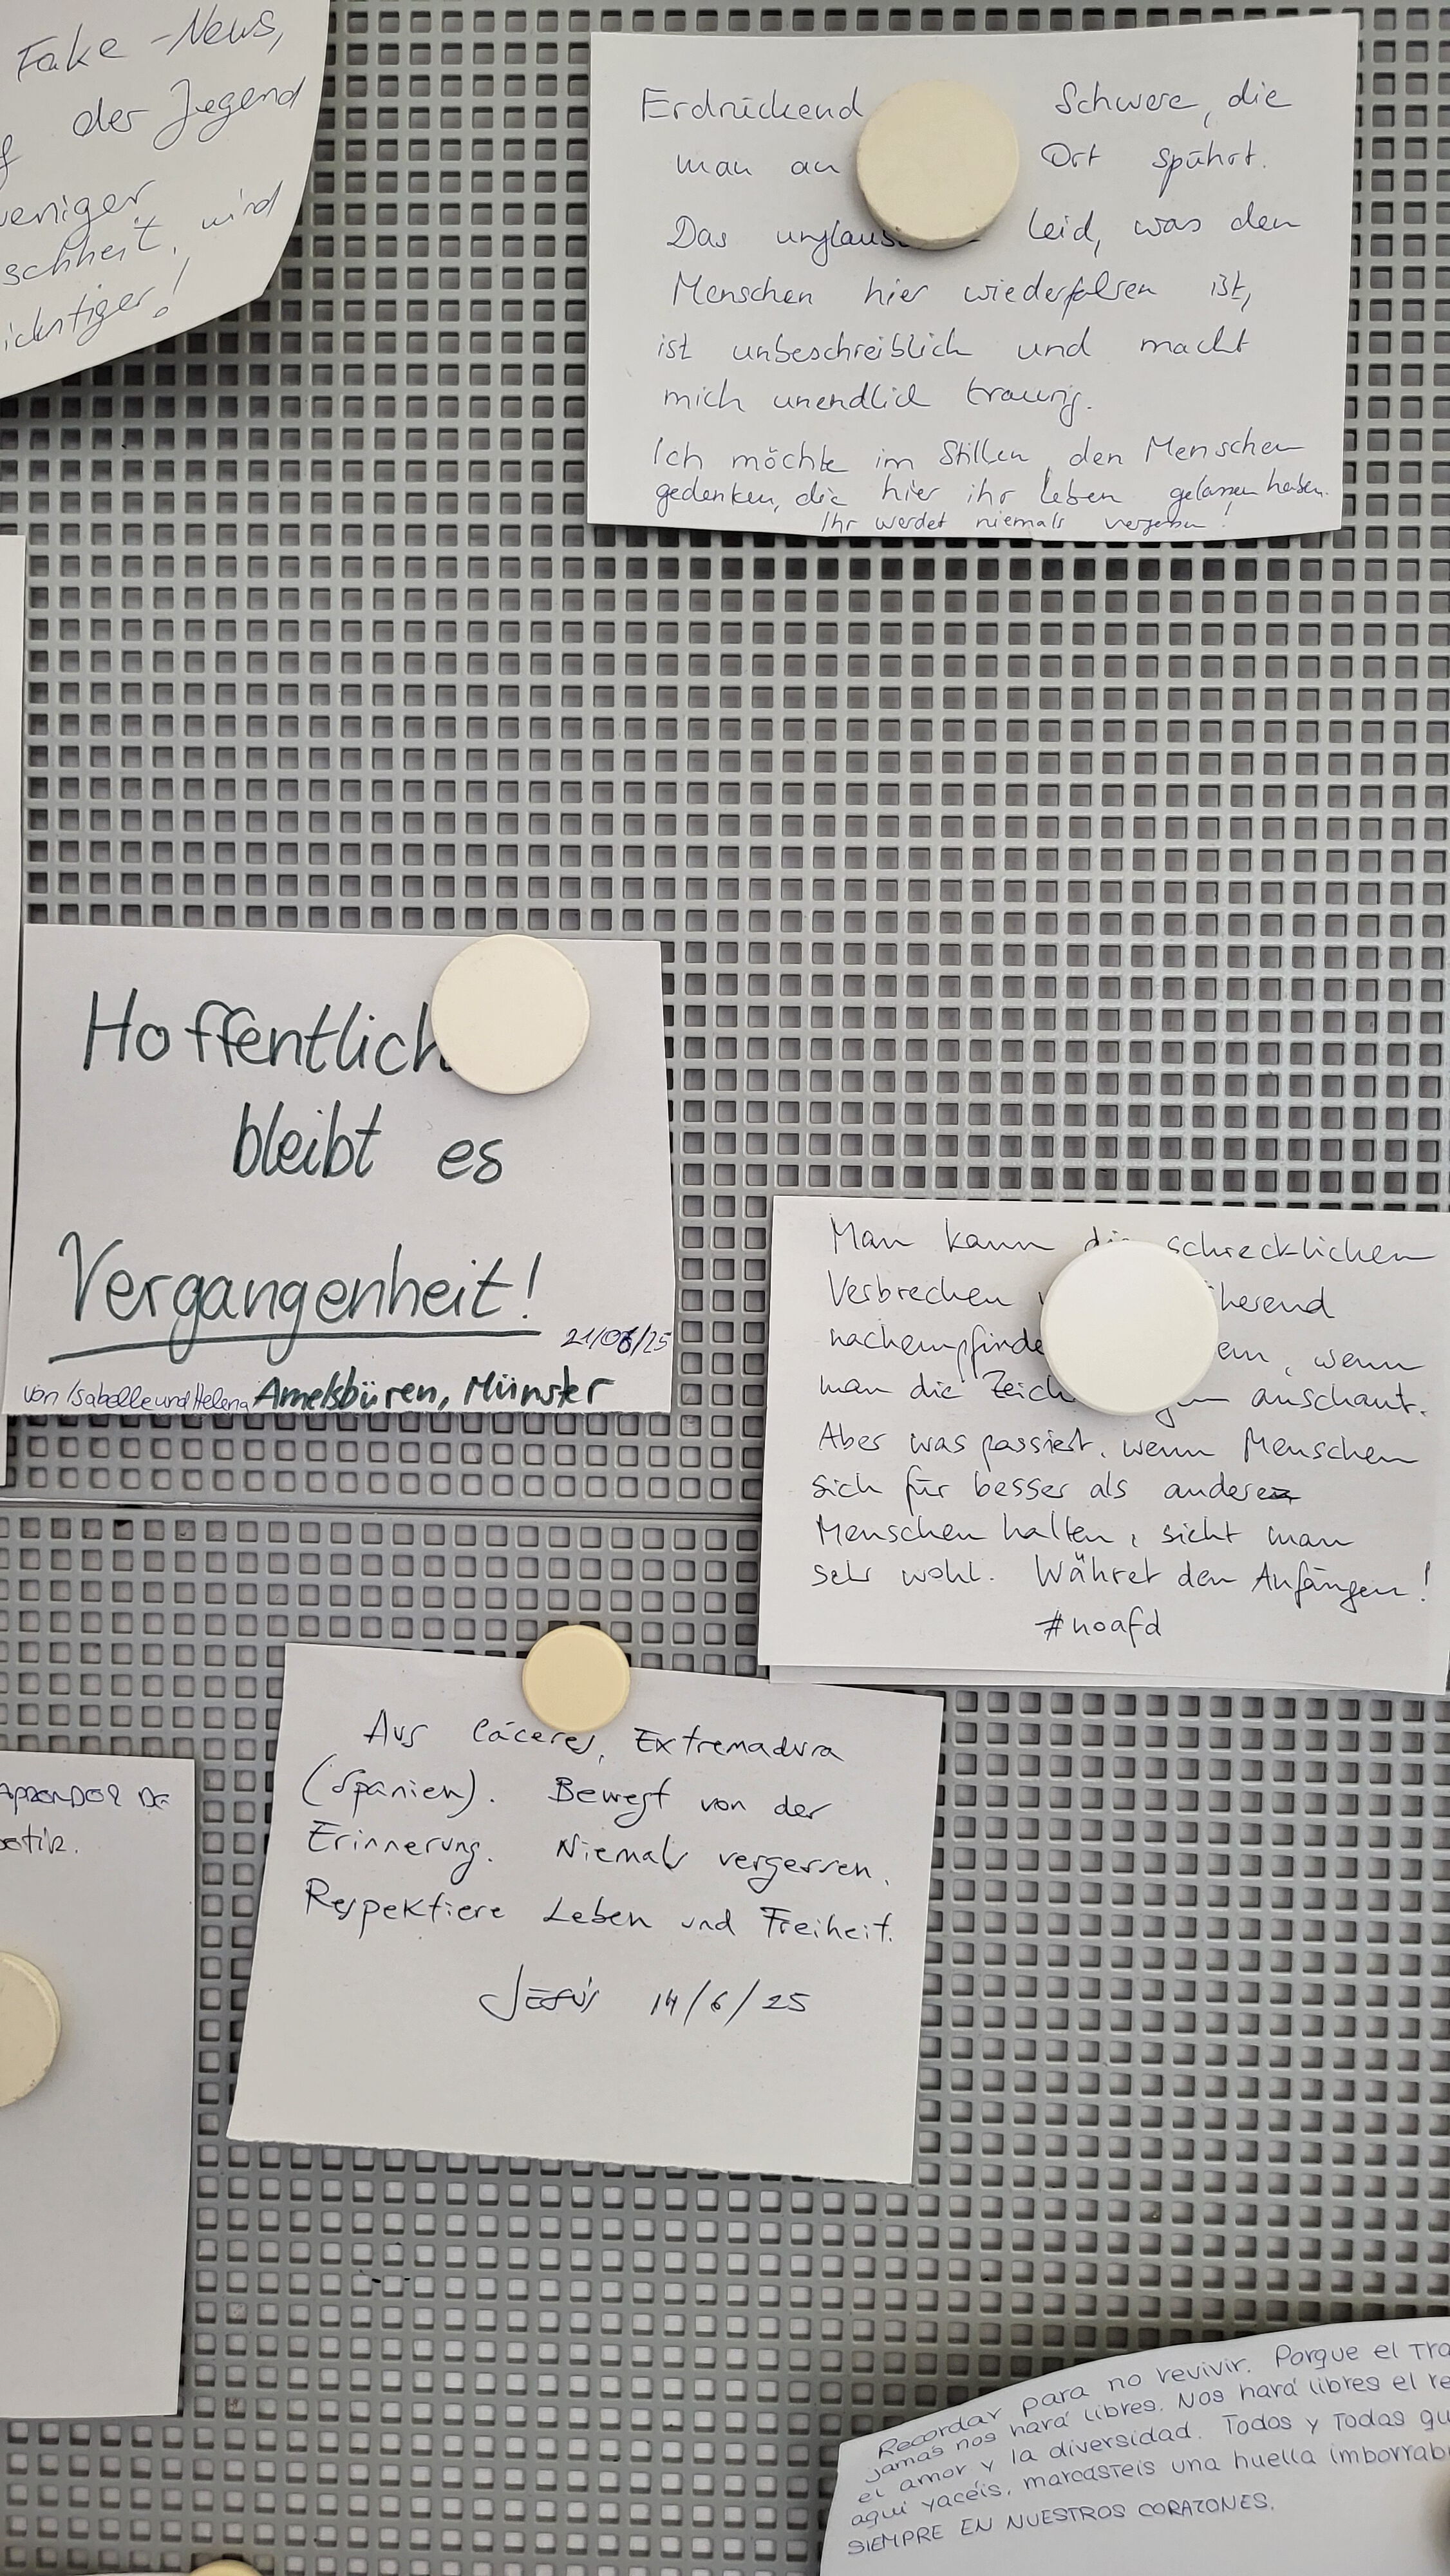 Fake-News,
der Jugend
weniger
wird
Erdrückend Schwere, die
man an Ort spührt.
Das Leid, was den
Menschen hier wiederfahren ist,
ist unbeschreiblich und macht
mich unendlich traurig.
Ich möchte im Stillen, den Menschen
gedenken, die hier ihr Leben gelassen haben.
Ihr werdet niemals vergessen!
Hoffentlich
bleibt es
Vergangenheit!
21/06/25
von Isabelle und Helena Amelsbüren, Münster
Man kann die schrecklichen
Verbrechen
wenn
man die anschaut.
Aber was passiert, wenn Menschen
sich für besser als andere
Menschen halten, sieht man
sehr wohl. Währet den Anfängen!
#noafd
Aus Cáceres, Extremadura
(Spanien). Bewegt von der
Erinnerung. Niemals vergessen.
Respektiere Leben und Freiheit.
Jesús 14/6/25
APRENDER DE
Recordar para no revivir. Porque el
jamás nos hará libres. Nos hará libres el
el amor y la diversidad. Todos y Todas
aquí yacéis, marcasteis una huella
SIEMPRE EN NUESTROS CORAZONES.